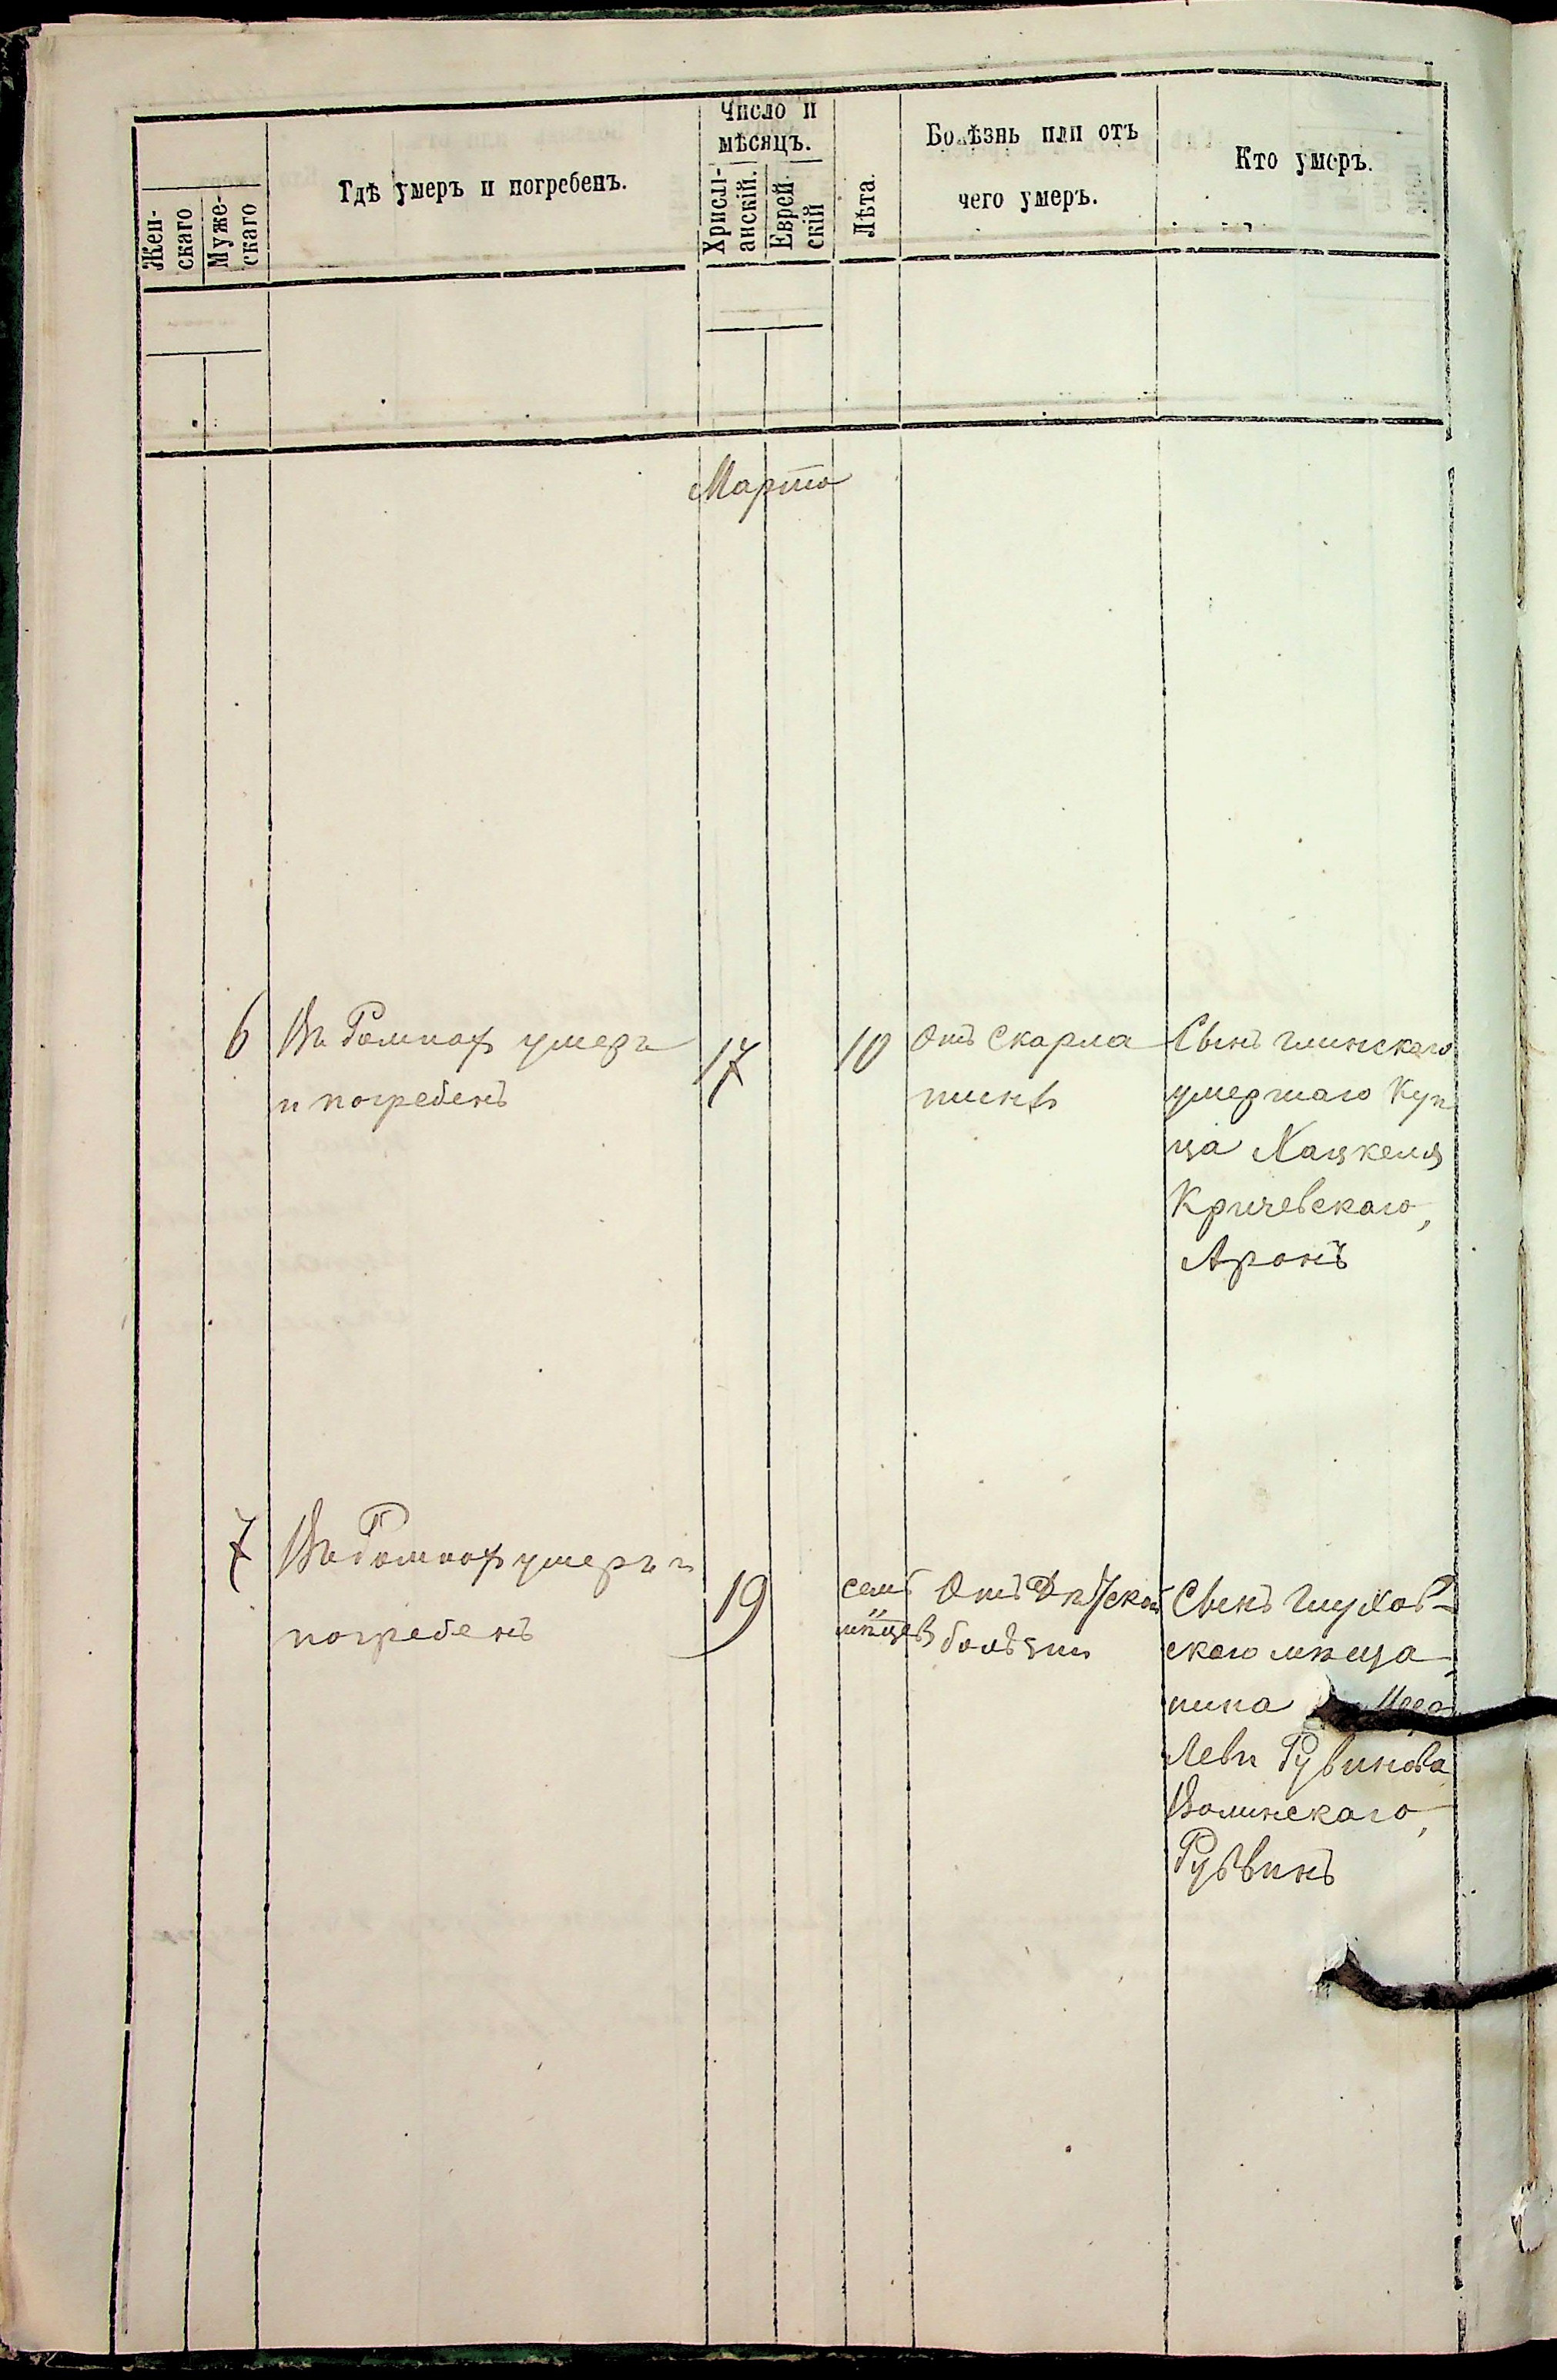 Жен-
скаго
Муже-
скаго
Гдѣ умеръ и погребенъ.
Число и
мѣсяцъ.
Христі-
анскій.
Еврей-
скій
Лѣта.
Болѣзнь или отъ
чего умеръ.
Кто умеръ.
Марта
6
Въ Ромнах умеръ
и погребенъ
17
10
Отъ Скарла
тины
Сынъ Глинскаго
умершаго Куп
ца Хацкеля
Кричевскаго,
Аронъ
7
Въ Ромнах умеръ и
погребенъ
19
семь
Отъ Дѣтской
болѣзни
Сынъ Глухов-
скаго мѣща
нина
Леви Рувинова
Волинскаго,
Рувинъ